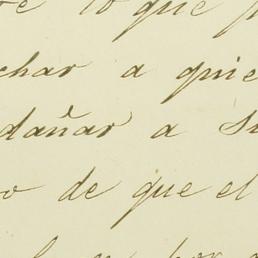 lo que
char a quie
dañar a su
o de que el